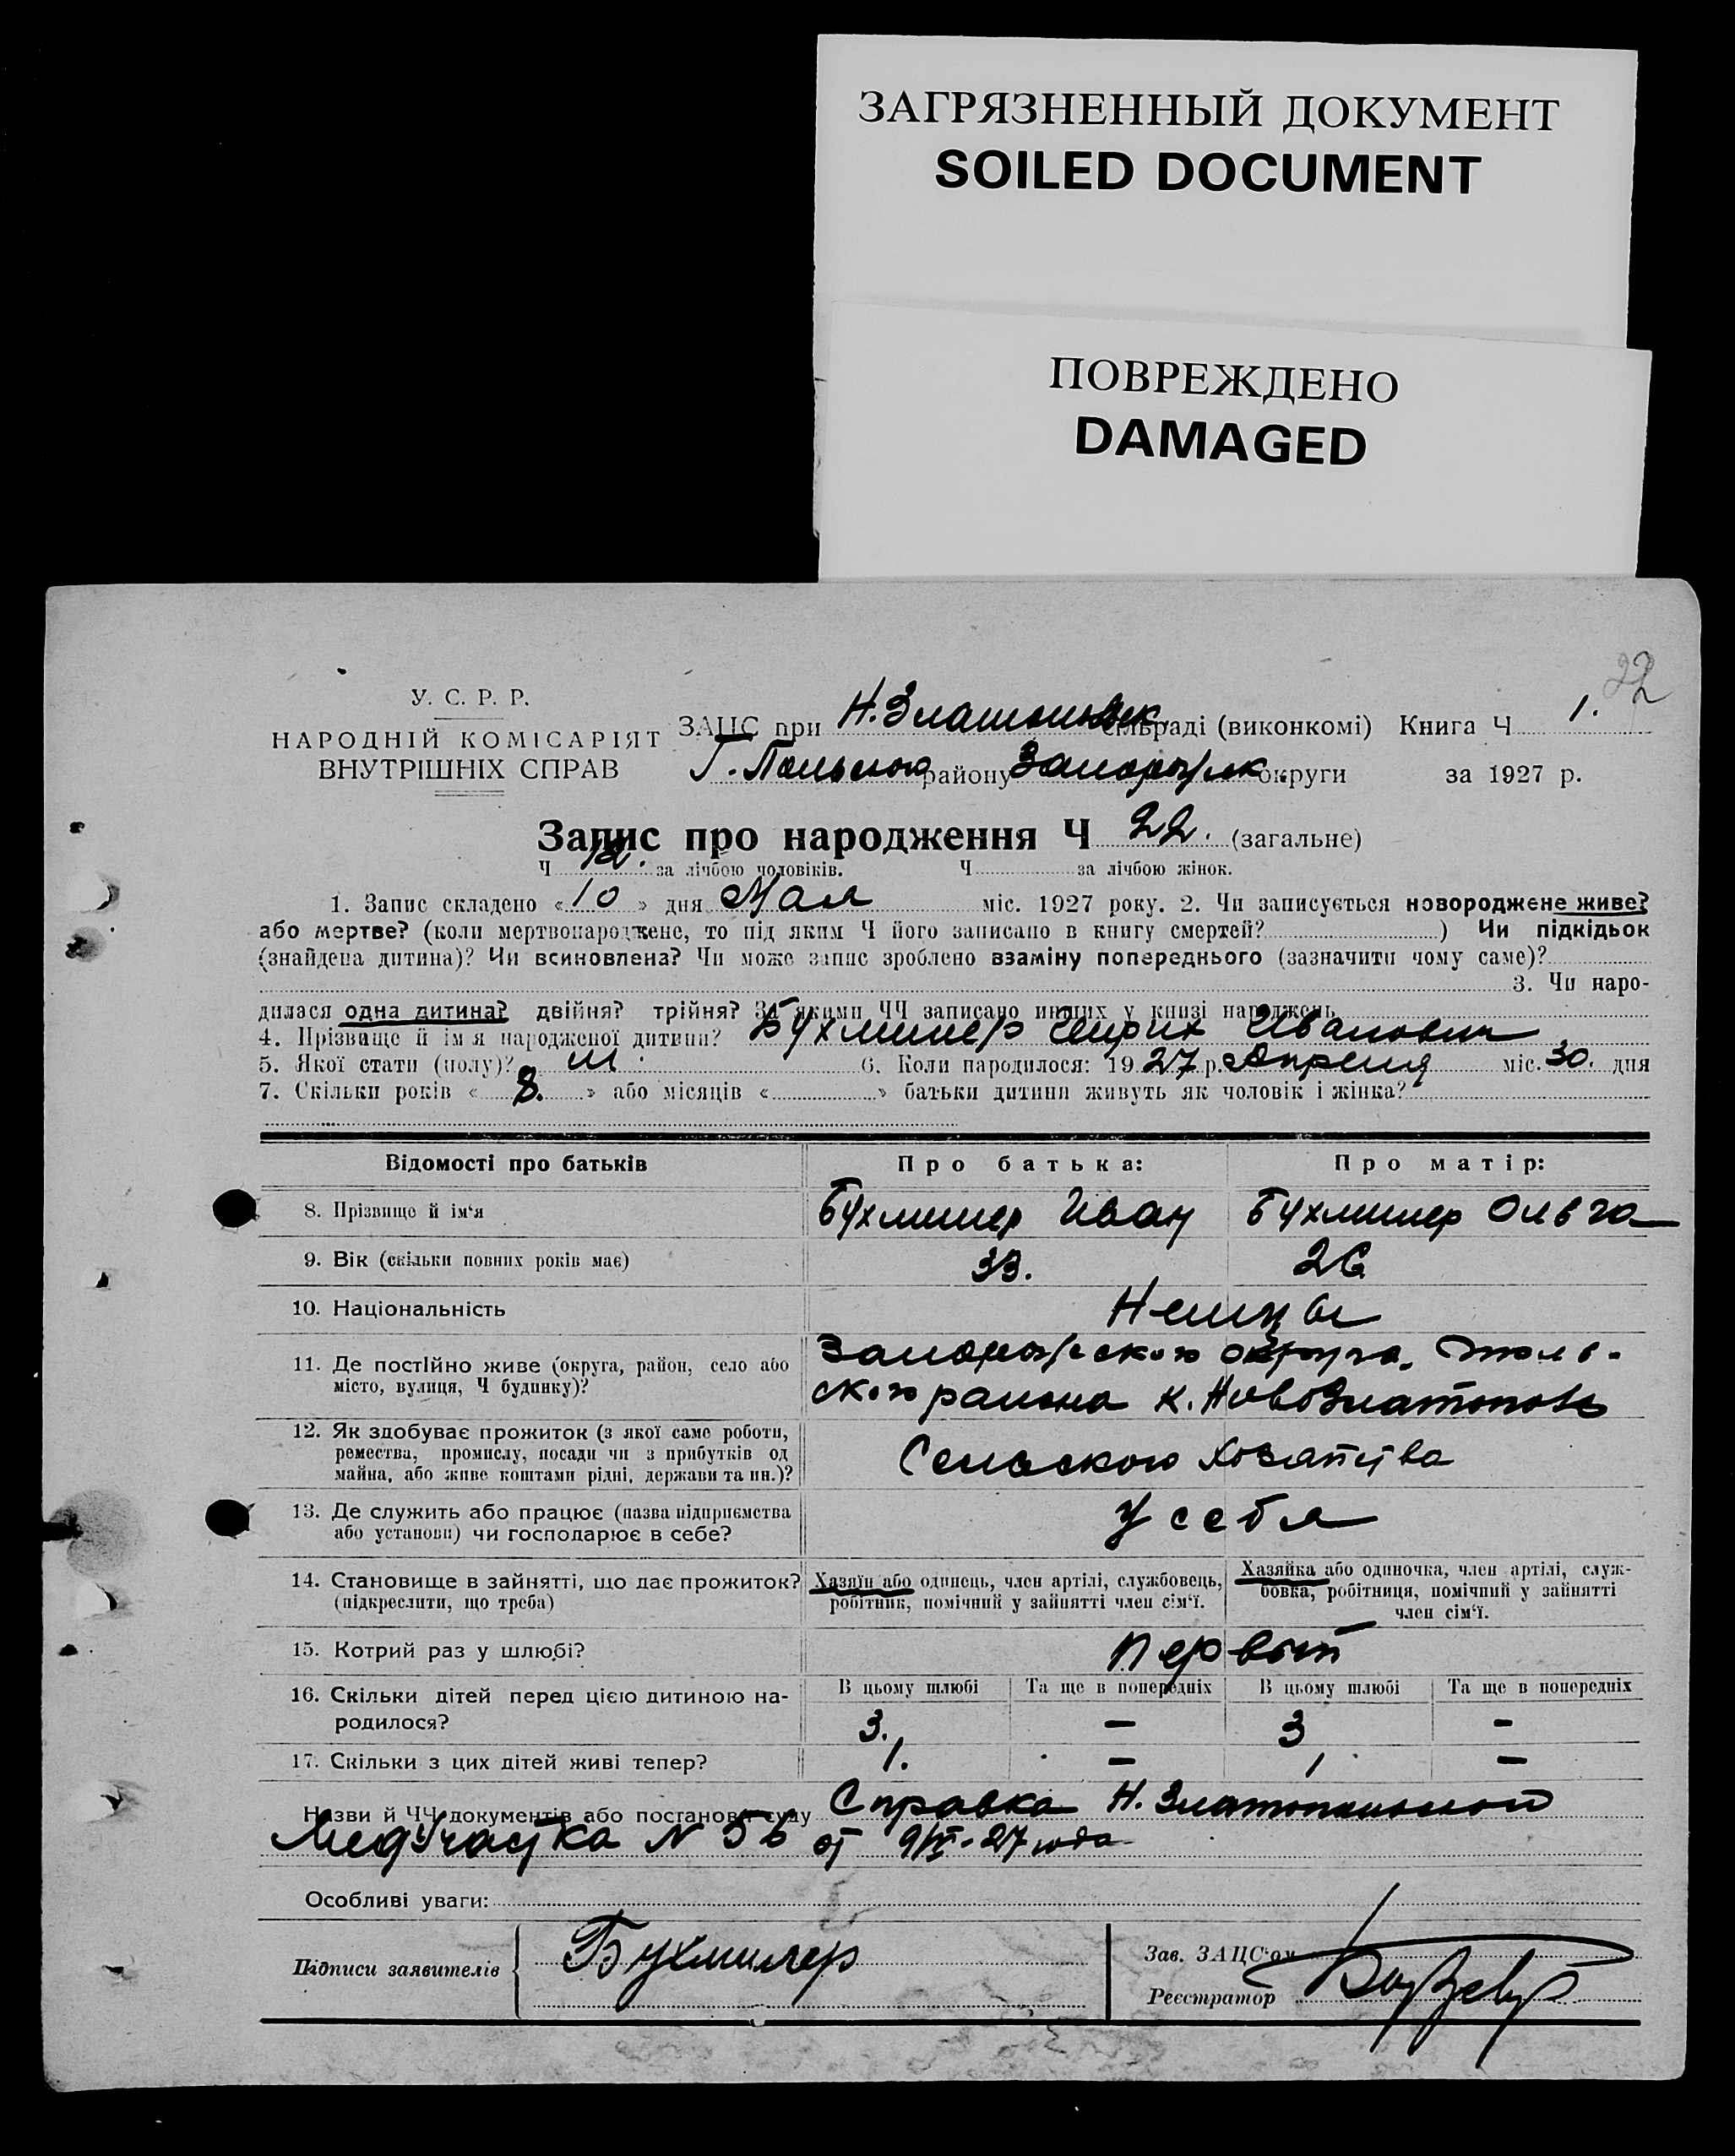 ЗАГРЯЗНЕННЫЙ ДОКУМЕНТ
SOILED DOCUMENT
ПОВРЕЖДЕНО
DAMAGED
22
У. С. Р. Р.
НАРОДНІЙ КОМІСАРІЯТ
ВНУТРІШНІХ СПРАВ
ЗАЦС при Н. Златопольск. сільраді (виконкомі) Книга Ч 1.
Г. Польского району Запорожск. округи за 1927 р.
Запис про народження Ч 22. (загальне)
Ч 12. за лічбою чоловіків. Ч за лічбою жінок.
1. Запис складено « 10 » дня Мая міс. 1927 року. 2. Чи записується новороджене живе?
або мертве? (коли мертвонароджене, то під яким Ч його записано в книгу смертей? ) Чи підкідьок
(знайдена дитина)? Чи всиновлена? Чи може запис зроблено взаміну попереднього (зазначити чому саме)?
3. Чи наро-
дилася одна дитина? двійня? трійня? За якими ЧЧ записано инших у книзі народжень
4. Прізвище й ім'я народженої дитини? Бухмиллер Гейрих Иванович
5. Якої стати (полу)? м. 6. Коли народилося: 19 27 р. Апреля міс. 30. дня
7. Скільки років « 8. » або місяців « » батьки дитини живуть як чоловік і жінка?
Відомості про батьків Про батька: Про матір:
8. Прізвище й ім'я Бухмиллер Иван Бухмиллер Ольга
9. Вік (скільки повних років має) 33. 26
10. Національність Немцы
11. Де постійно живе (округа, район, село або Запорожского округа, Гполь-
місто, вулиця, Ч будинку)? ского района к. НовоЗлатополь
12. Як здобуває прожиток (з якої саме роботи,
ремества, промислу, посади чи з прибутків од Сельского хозяйства
майна, або живе коштами рідні, держави та ин.)?
13. Де служить або працює (назва підприємства У себя
або установи) чи господарює в себе?
14. Становище в зайнятті, що дає прожиток? Хазяїн або одинець, член артілі, службовець, Хазяйка або одиночка, член артілі, служ-
(підкреслити, що треба) робітник, помічний у зайнятті член сім'ї. бовка, робітниця, помічний у зайнятті
член сім'ї.
15. Котрий раз у шлюбі? Первый
16. Скільки дітей перед цією дитиною на- В цьому шлюбі Та ще в попередніх В цьому шлюбі Та ще в попередніх
родилося? 3. — 3 —
17. Скільки з цих дітей живі тепер? 1. — 1 —
Назви й ЧЧ документів або постанови суду Справка Н. Златопольской
МедУчастка N 56 от 27 года
Особливі уваги:
Підписи заявителів Бухмиллер
Зав. ЗАЦС'ом
Реєстратор